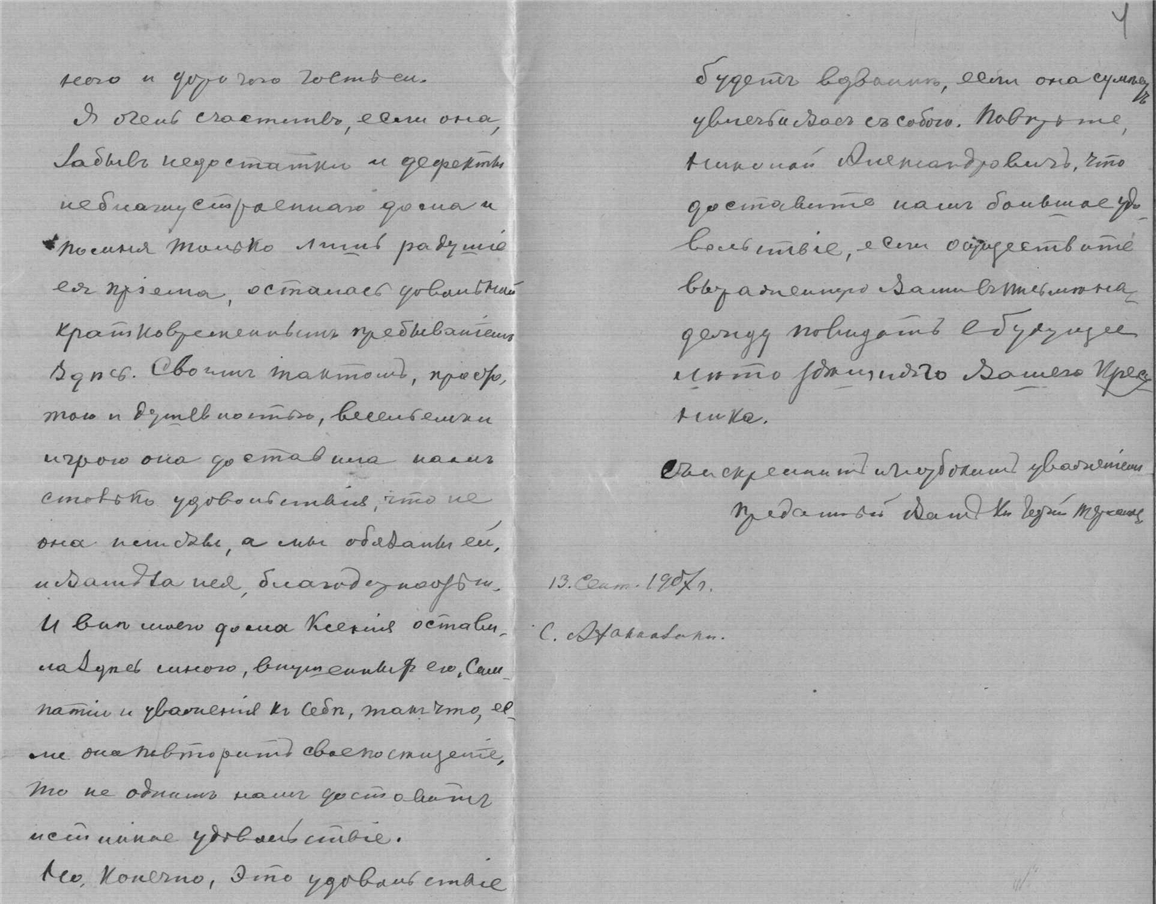 ного и дорогого гостьей.
Я очень счастливъ, если она,
забывъ недостатки и дефекты
неблагоустроеннаго дома и
помня только лишь радушіе
ея пріема, осталась довольной
кратковременнымъ пребываніемъ
здѣсь. Своимъ тактомъ, просто-
тою и душевностью, весельемъ и
игрою она доставила намъ
столько удовольствія, что не
она , а мы обязаны ей,
и Вамъ за нея, благодарностью.
И внѣ моего дома Ксенія остави-
ла здѣсь много, внушенныхъ ею, сим-
патіи и уваженія къ себѣ, такъ что, ес-
ли она повторитъ свое посѣщеніе,
то не однимъ намъ доставитъ
истинное удовольствіе.
Но, конечно, это удовольствіе
4
будетъ вдвойнѣ, если она сумѣетъ
увлечь и Васъ съ собою. Повѣрьте,
Николай Александровичъ, что
доставите намъ большое удо-
вольствіе, если осуществите
выраженную Вами въ письмѣ на-
дежду повидать въ будущее
лѣто Вашего
ника.
Съ искреннимъ и глубокимъ уваженіемъ
преданный Вамъ Кн
13. Сент. 1907 г.
С.